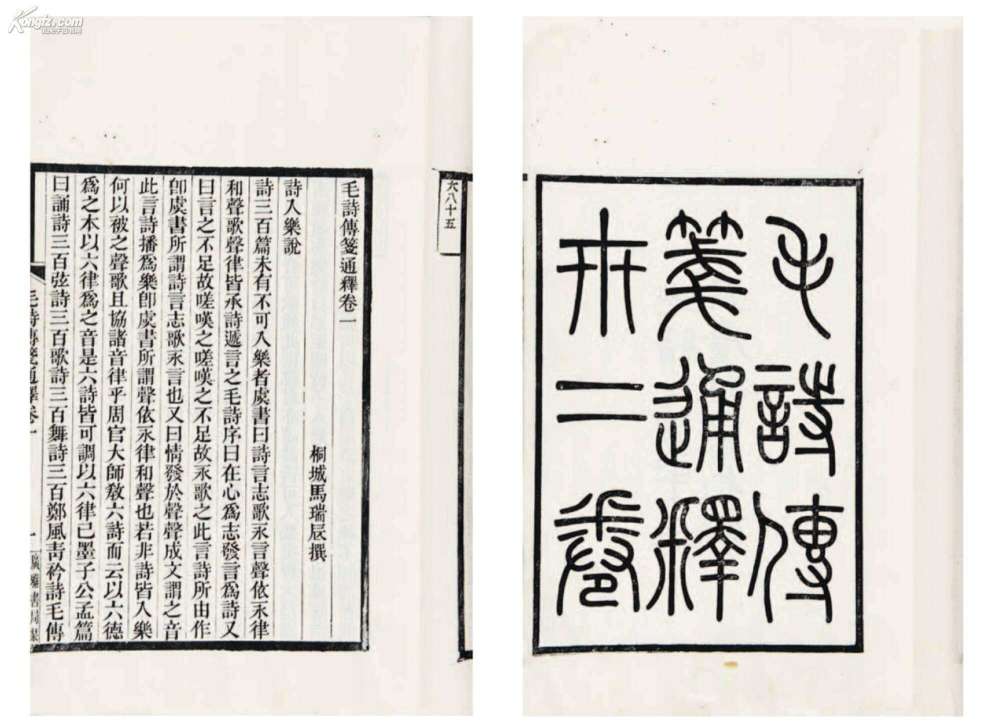 毛詩傳
箋通釋
卅二卷
大八十五
毛詩傳箋通釋卷一
桐城馬瑞辰撰
詩入樂說
詩三百篇未有不可入樂者虞書曰詩言志歌永言聲依永律
和聲歌聲律皆承詩遞言之毛詩序曰在心爲志發言爲詩又
曰言之不足故嗟嘆之嗟嘆之不足故永歌之此言詩所由作
卽虞書所謂詩言志歌永言也又曰情發於聲聲成文謂之音
此言詩播爲樂卽虞書所謂聲依永律和聲也若非詩皆入樂
何以被之聲歌且協諸音律乎周官大師敎六詩而云以六德
爲之本以六律爲之音是六詩皆可調以六律已墨子公孟篇
曰誦詩三百弦詩三百歌詩三百舞詩三百鄭風靑衿詩毛傳
毛詩傳箋通釋卷一
一
廣雅書局栞
Kongfz.com